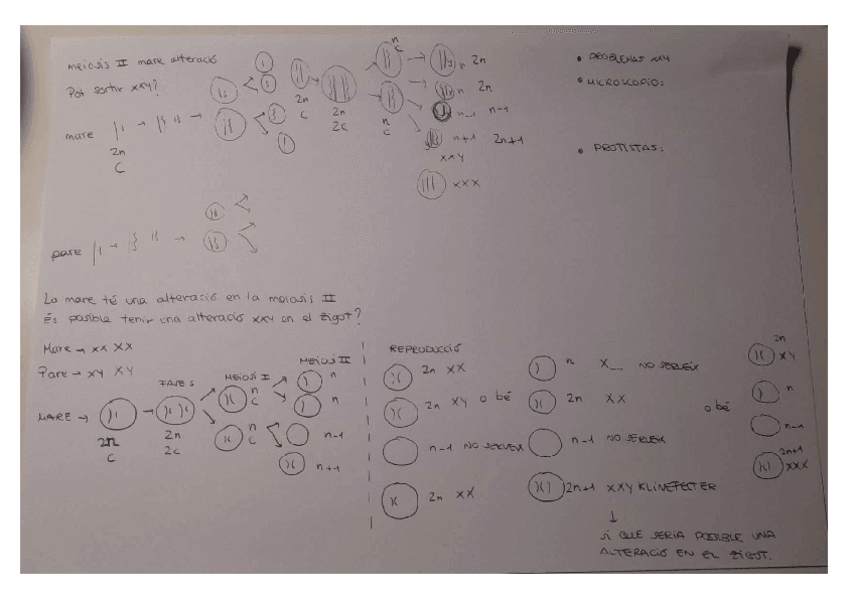 meiosis II mare alteració
Pot sortir XXY?
mare
2n
c
2n
c
2n
2c
n
c
n
c
2n
n 2n
n-1 n-1
n+1 2n+1
XXY
XXX
• PROBLEMAS XXY
• MICROSCOPIO:
• PROTISTAS:
pare
La mare té una alteració en la meiosis II
És possible tenir una alteració XXY en el zigot?
Mare → XX XX
Pare → XY XY
FASE S
MEIOSI I
MEIOSI II
MARE →
2n
c
2n
2c
n
c
n
c
n
n
n-1
n+1
REPRODUCCIÓ
2n XX
2n XY o bé
n-1 NO SERVEIX
2n XX
n X_ NO SERVEIX
2n XX
n-1 NO SERVEIX
2n+1 XXY KLINEFELTER
↓
SÍ QUE SERIA POSSIBLE UNA
ALTERACIÓ EN EL ZIGOT.
o bé
2n
XY
n
n-1
2n+1
XXX